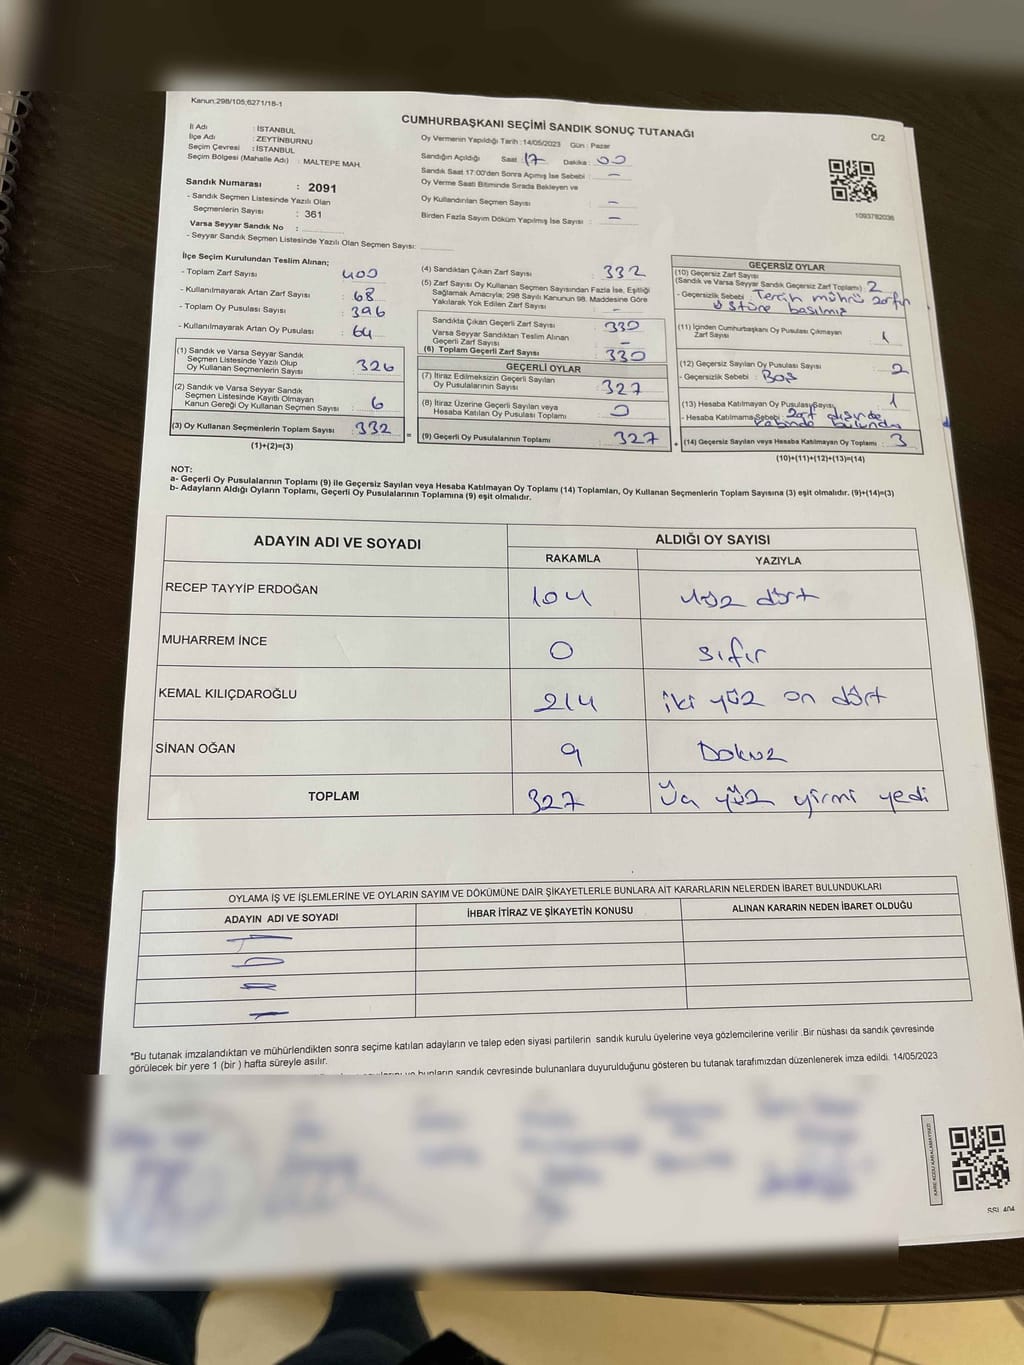 Kanun:298/105;6271/18-1
CUMHURBAŞKANI SEÇİMİ SANDIK SONUÇ TUTANAĞI
C/2
İl Adı : İSTANBUL
İlçe Adı : ZEYTİNBURNU
Seçim Çevresi : İSTANBUL
Seçim Bölgesi (Mahalle Adı) : MALTEPE MAH.
Sandık Numarası : 2091
- Sandık Seçmen Listesinde Yazılı Olan
Seçmenlerin Sayısı : 361
Varsa Seyyar Sandık No :
- Seyyar Sandık Seçmen Listesinde Yazılı Olan Seçmen Sayısı:
Oy Vermenin Yapıldığı Tarih :14/05/2023 Gün : Pazar
Sandığın Açıldığı Saat : 17 Dakika : 00
Sandık Saat 17:00'den Sonra Açımış İse Sebebi : –
Oy Verme Saati Bitiminde Sırada Bekleyen ve
Oy Kullandırılan Seçmen Sayısı : –
Birden Fazla Sayım Döküm Yapılmış İse Sayısı : –
1093782036
İlçe Seçim Kurulundan Teslim Alınan;
- Toplam Zarf Sayısı : 400
- Kullanılmayarak Artan Zarf Sayısı : 68
- Toplam Oy Pusulası Sayısı : 396
- Kullanılmayarak Artan Oy Pusulası : 64
(1) Sandık ve Varsa Seyyar Sandık
Seçmen Listesinde Yazılı Olup
Oy Kullanan Seçmen Sayısı : 326
(2) Sandık ve Varsa Seyyar Sandık
Seçmen Listesinde Kayıtlı Olmayan
Kanun Gereği Oy Kullanan Seçmen Sayısı : 6
(3) Oy Kullanan Seçmenlerin Toplam Sayısı : 332
(1)+(2)=(3)
(4) Sandıktan Çıkan Zarf Sayısı : 332
(5) Zarf Sayısı Oy Kullanan Seçmen Sayısından Fazla İse, Eşitliği
Sağlamak Amacıyla; 298 Sayılı Kanunun 98. Maddesine Göre
Yakılarak Yok Edilen Zarf Sayısı : –
Sandıkta Çıkan Geçerli Zarf Sayısı : 330
Varsa Seyyar Sandıktan Teslim Alınan
Geçerli Zarf Sayısı : –
(6) Toplam Geçerli Zarf Sayısı : 330
GEÇERLİ OYLAR
(7) İtiraz Edilmeksizin Geçerli Sayılan
Oy Pusulalarının Sayısı : 327
(8) İtiraz Üzerine Geçerli Sayılan veya
Hesaba Katılan Oy Pusulası Toplamı : 0
= (9) Geçerli Oy Pusulalarının Toplamı : 327
GEÇERSİZ OYLAR
(10) Geçersiz Zarf Sayısı
(Sandık ve Varsa Seyyar Sandık Geçersiz Zarf Toplamı) : 2
- Geçersizlik Sebebi : Tercih mührü zarfın
üstüne basılmış
(11) İçinden Cumhurbaşkanı Oy Pusulası Çıkmayan
Zarf Sayısı : 1
(12) Geçersiz Sayılan Oy Pusulası Sayısı : 2
- Geçersizlik Sebebi : Boş
(13) Hesaba Katılmayan Oy Pusulası Sayısı : 1
- Hesaba Katılmama Sebebi : Zarf dışında
kabinde bulundu
+ (14) Geçersiz Sayılan veya Hesaba Katılmayan Oy Toplamı : 3
(10)+(11)+(12)+(13)=(14)
NOT:
a- Geçerli Oy Pusulalarının Toplamı (9) ile Geçersiz Sayılan veya Hesaba Katılmayan Oy Toplamı (14) Toplamları, Oy Kullanan Seçmenlerin Toplam Sayısına (3) eşit olmalıdır. (9)+(14)=(3)
b- Adayların Aldığı Oyların Toplamı, Geçerli Oy Pusulalarının Toplamına (9) eşit olmalıdır.
ADAYIN ADI VE SOYADI ALDIĞI OY SAYISI
RAKAMLA YAZIYLA
RECEP TAYYİP ERDOĞAN 104 yüz dört
MUHARREM İNCE 0 sıfır
KEMAL KILIÇDAROĞLU 214 iki yüz on dört
SİNAN OĞAN 9 Dokuz
TOPLAM 327 Üç yüz yirmi yedi
OYLAMA İŞ VE İŞLEMLERİNE VE OYLARIN SAYIM VE DÖKÜMÜNE DAİR ŞİKAYETLERLE BUNLARA AİT KARARLARIN NELERDEN İBARET BULUNDUKLARI
ADAYIN ADI VE SOYADI İHBAR İTİRAZ VE ŞİKAYETİN KONUSU ALINAN KARARIN NEDEN İBARET OLDUĞU
*Bu tutanak imzalandıktan ve mühürlendikten sonra seçime katılan adayların ve talep eden siyasi partilerin sandık kurulu üyelerine veya gözlemcilerine verilir .Bir nüshası da sandık çevresinde
görülecek bir yere 1 (bir ) hafta süreyle asılır.
bunların sandık çevresinde bulunanlara duyurulduğunu gösteren bu tutanak tarafımızdan düzenlenerek imza edildi. 14/05/2023
KARE KODU KARALAMAYINIZ!